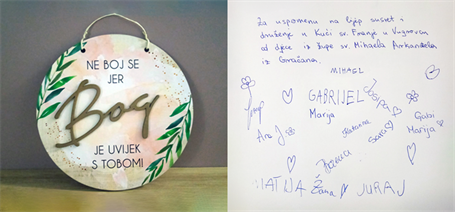 NE BOJ SE
JER
Bog
JE UVIJEK
S TOBOM!
Za uspomenu na lijep susret i
druženje u Kući sv. Franje u Vugrovcu
od djece iz župe sv. Mihaela Arkanđela
iz Gračana.
MIHAEL
GABRIJEL
Marija
Josipa
Gabi
Marija
Ana J
Katarina
Sara
MATIJA
Žana
JURAJ